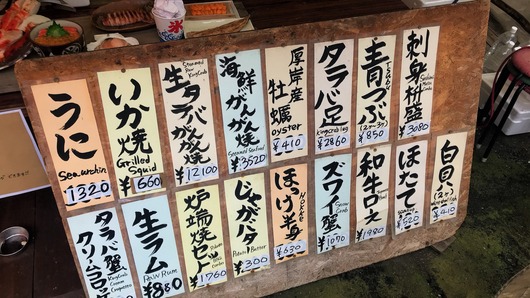 うに
Sea urchin
1320
いか焼
Grilled
Squid
¥660
生タラバがんがん焼
Steamed
Raw
King Crab
¥12100
海鮮がんがん焼
Steamed Seafood
¥3520
厚岸産
牡蠣
oyster
¥410
タラバ足
King crab leg
¥2860
青つぶ
(2~3ヶ)
¥850
刺身枡盛
¥3080
タラバ蟹
クリームコロッケ
生ラム
Raw Rum
¥880
炉端焼セット
¥1760
じゃがバタ
Potato Butter
¥300
ほっけ半身
HOKKE
¥630
ズワイ蟹
Snow
Crab
¥1070
和牛串
¥1980
ほたて
¥520
白貝(2ヶ)
¥410
氷